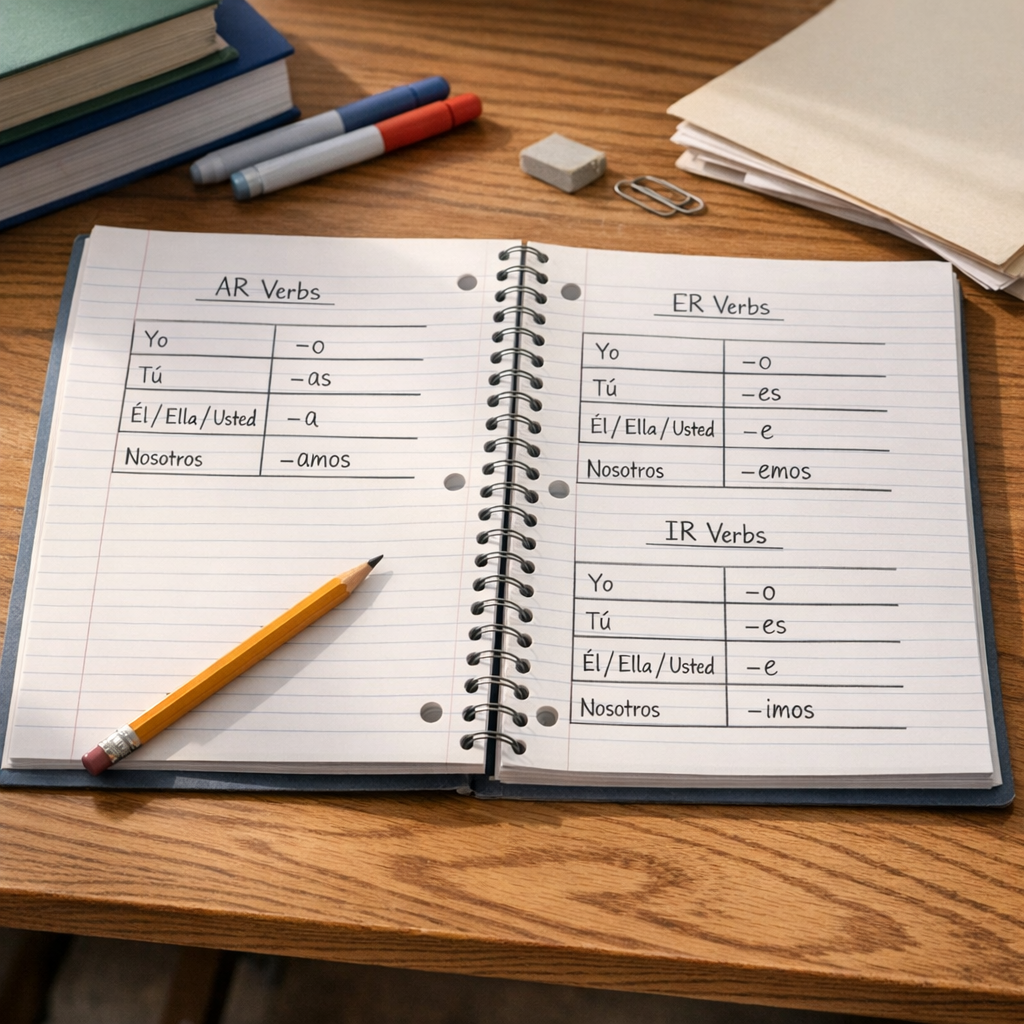 AR Verbs
Yo -o
Tú -as
Él/Ella/Usted -a
Nosotros -amos
ER Verbs
Yo -o
Tú -es
Él/Ella/Usted -e
Nosotros -emos
IR Verbs
Yo -o
Tú -es
Él/Ella/Usted -e
Nosotros -imos